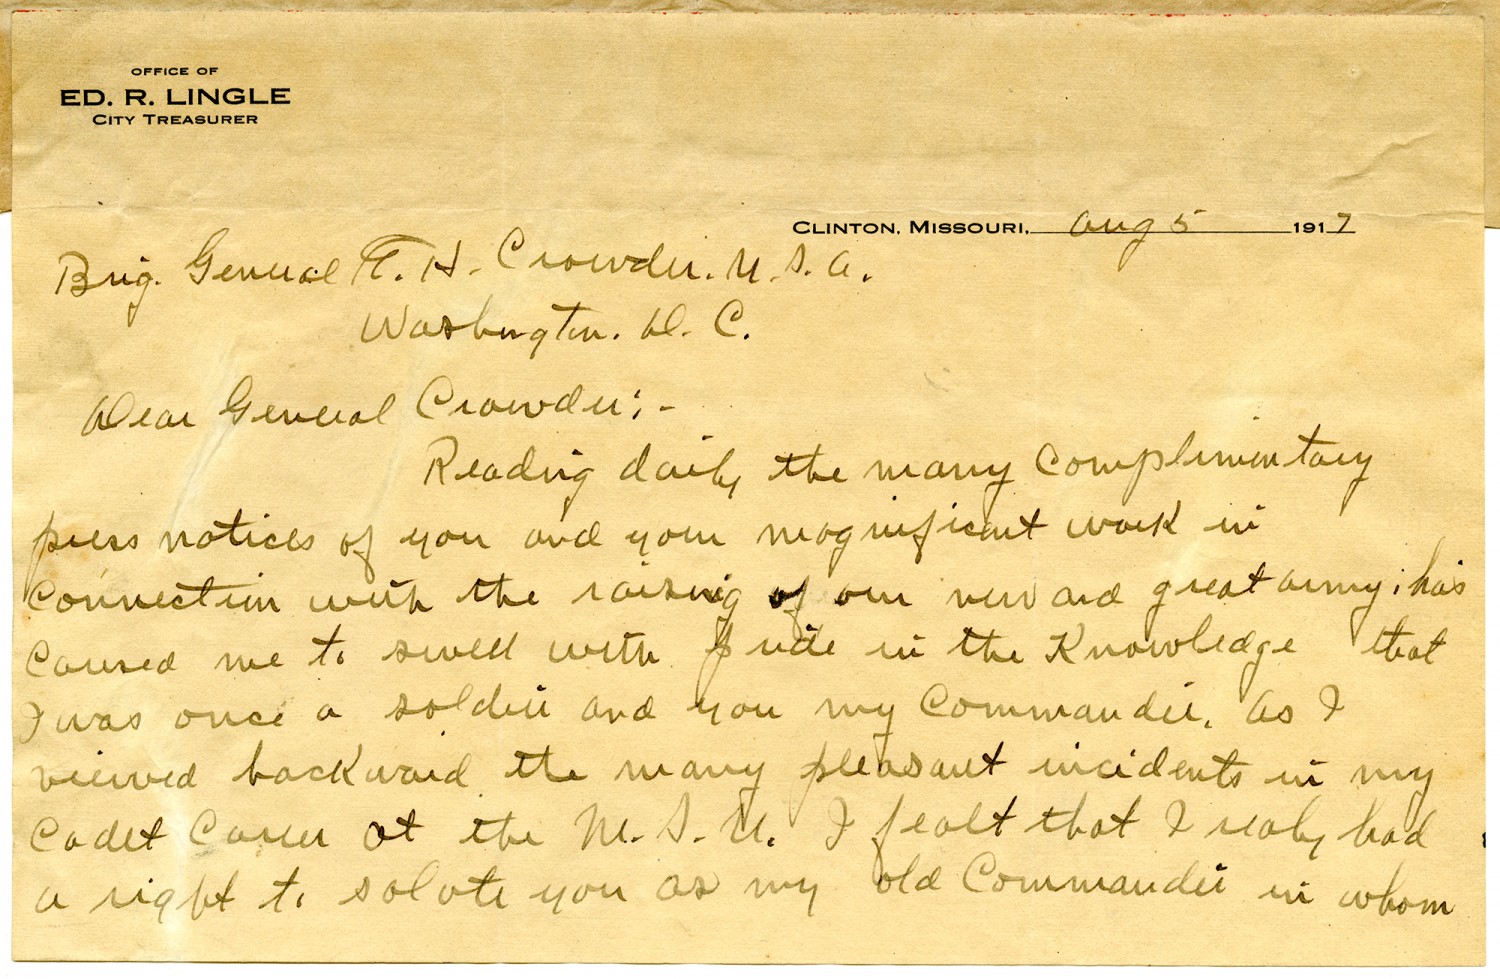 OFFICE OF
ED. R. LINGLE
CITY TREASURER
CLINTON, MISSOURI, Aug 5 1917
Brig. General E. H. Crowder. U. S. A.
Washington. D. C.
Dear General Crowder; -
Reading daily the many complimintary
press notices of you and your magnificant work in
connection with the raising of our new and great army; has
caused me to swell with pride in the Knowledge that
I was once a soldier and you my Commander. As I
viewed backward the many pleasant incidents in my
Cadet Career at the M. S. U. I fealt that I realy had
a right to salute you as my old Commander in whom